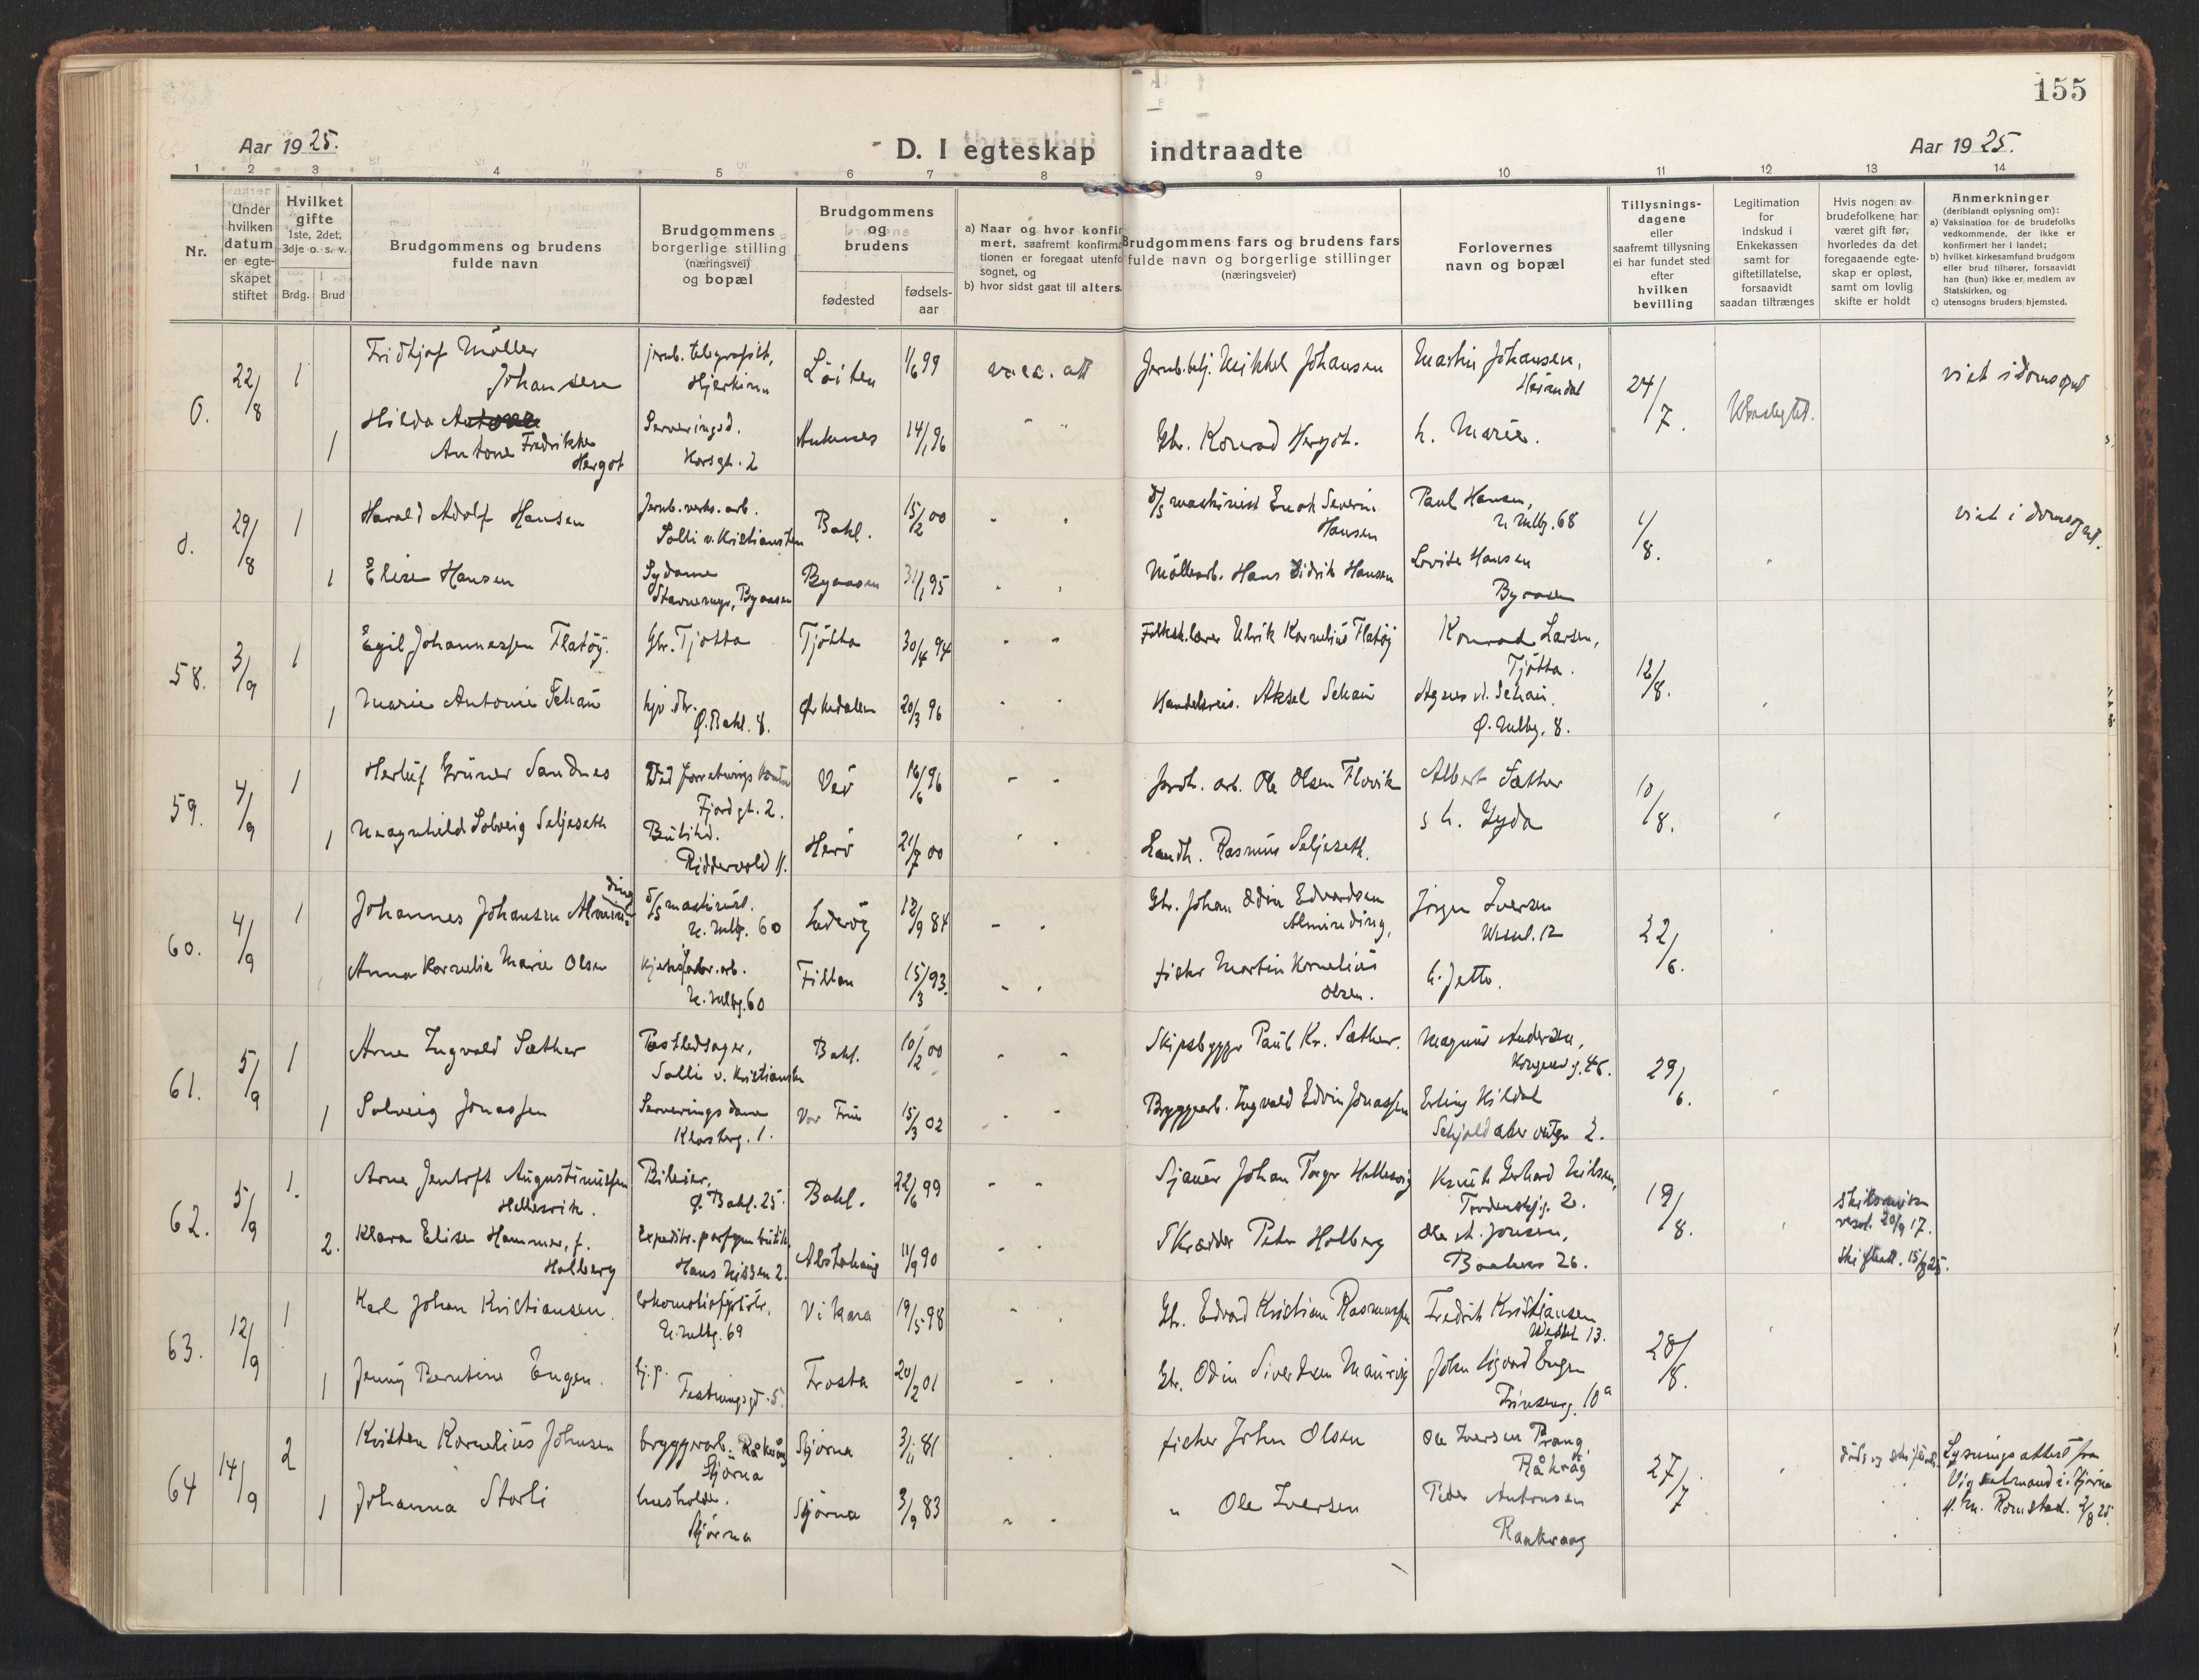 155
Aar 1925.
D. I egteskap indtraadte
Aar 1925.
1 2 3 4 5 6 7 8 9 10 11 12 13 14
Nr.
Under
hvilken
datum
er egte-
skapet
stiftet
Hvilket
gifte
1ste, 2det,
3dje o. s. v.
Brdg. Brud
Brudgommens og brudens
fulde navn
Brudgommens
borgerlige stilling
(næringsvei)
og bopæl
Brudgommens
og
brudens
fødested
fødsels-
aar
a) Naar og hvor konfir
mert, saafremt konfirma
tionen er foregaat utenfo
sognet, og
b) hvor sidst gaat til alters.
Brudgommens fars og brudens fars
fulde navn og borgerlige stillinger
(næringsveier)
Forlovernes
navn og bopæl
Tillysnings-
dagene
eller
saafremt tillysning
ei har fundet sted
efter
hvilken
bevilling
Legitimation
for
indskud i
Enkekassen
samt for
giftetillatelse,
forsaavidt
saadan tiltrænges
Hvis nogen av
brudefolkene har
været gift før,
hvorledes da det
foregaaende egte-
skap er opløst,
samt om lovlig
skifte er holdt
Anmerkninger
(deriblandt oplysning om):
a) Vaksination for de brudefolks
vedkommende, der ikke er
konfirmert her i landet;
b) hvilket kirkesamfund brudgom
eller brud tilhører, forsaavidt
han (hun) ikke er medlem av
Statskirken, og
c) utensogns bruders hjemsted.
0. 22/8 1 Fridtjof Møller
Johansen
jernb. telegrafist,
Hjerkinn
Løiten 1/6 99 vacc. att
Jernb.betj. Mikkel Johansen
Martin Johansen,
24/7.
viet i domsogn
1 Hilda
Antone Fredrikke
Hergot
Serveringsd.
Korsgt. 2
14/1 96
Gbr. Konrad Hergot.
h. Marie.
0. 29/8 1 Harald Adolf Hansen
Jernb. verks. arb.
Solli v. Kristiansten
Bakl. 15/2 00
d/s maskinist Enok Severin
Hansen
Paul Hansen,
N. Mllbg. 68
1/8.
viet i domsogn.
1 Elise Hansen
Sydame
Byaasen
Byaasen 31/1 95
Møllearb. Hans Didrik Hansen
Lovise Hansen
Byaasen
58. 3/9 1 Egil Johannessen Flatøy.
Gbr. Tjøtta
Tjøtta 30/4 94
Folkesk.lærer Ulrik Kornelius Flatøy
Konrad Larsen,
Tjøtta.
12/8.
1 Marie Antonie Schau
hjv. dtr.
Ø. Bakl. 8.
Ørkedalen 20/3 96
Handelsreis. Aksel Schau
Agnes M. Schau.
Ø. Mllbg. 8.
59. 4/9 1 Herluf Grüner Sandnes
Fjordgt. 2.
16/6 96
Ole Olsen Flovik
Albert Sæther
10/8.
1 Magnhild Solveig Seljeseth
Butikd.
Riddervold 11.
Herø 21/7 00
Landh. Rasmus Seljeseth.
s h. Lyda
60. 4/9 1 Johannes Johansen
d/s maskinist.
N. Mllbg. 60
Inderøy 13/9 84
Gbr. Johan Edin Edvardsen
Alminding,
Jørgen Iversen
Wessel. 12
22/6.
Anna Kornelie Marie Olsen
Kjeksfabr. arb.
N. Mllbg. 60
Fillan 15/3 93.
fisker Martin Kornelius
Olsen.
h. Jette.
61. 5/9 1 Arne Ingvald Sæther
Postledsager,
Solli v. Kristiansten
Bakl. 10/2 00
Skipsbygger Paul Kr. Sæther.
Magnus Andersen,
29/6.
1 Solveig Jonassen
Serveringsdame
Klosterg. 1.
Vor Frue 15/3 02
Bryggearb. Ingvald Edvin Jonassen
Erling Kildal
62. 5/9 1. Arne Jentoft Augustinussen
Hellesvik.
Bileier,
Ø. Bakl. 25.
Bakl. 22/6 99
Sjauer Johan Hellesvig
Knut Gerhard Nilsen,
Tordenskj.g. 2.
19/8.
2. Klara Elise Hammer, f.
Holberg
Expeditr. parfymbutik,
Hans Nissen 2.
Alstahaug 11/9 90
Skrædder Peter Holberg
Ole A. Jonsen,
Baklands 26.
skilsmisse
20/9 17.
63. 12/9 1 Karl Johan Kristiansen.
lokomotivfyrbøt.,
N. Mllbg. 69
Vikna 19/5 98
Gbr. Edvard Kristian Rasmussen
Fredrik Kristiansen
Wessel 13.
28/8.
1 Jenny Berntine Engen.
hj. p.
Festningsgt. 5.
Frosta 20/2 01
Gbr. Odin Sivertsen
John Sigvard Engen
10a
64 14/9 2 Kristen Kornelius Johnsen
bryggearb. Råkvåg
Stjørna
Stjørna 3/11 81
fisker John Olsen
Ole Iversen Prang,
Råkvåg
27/7
Lysningsattest fra
2/8 25.
1 Johanna Storli
husholder.
Stjørna
Stjørna 3/9 83
" Ole Iversen
Peder Antonsen
Raakvaag